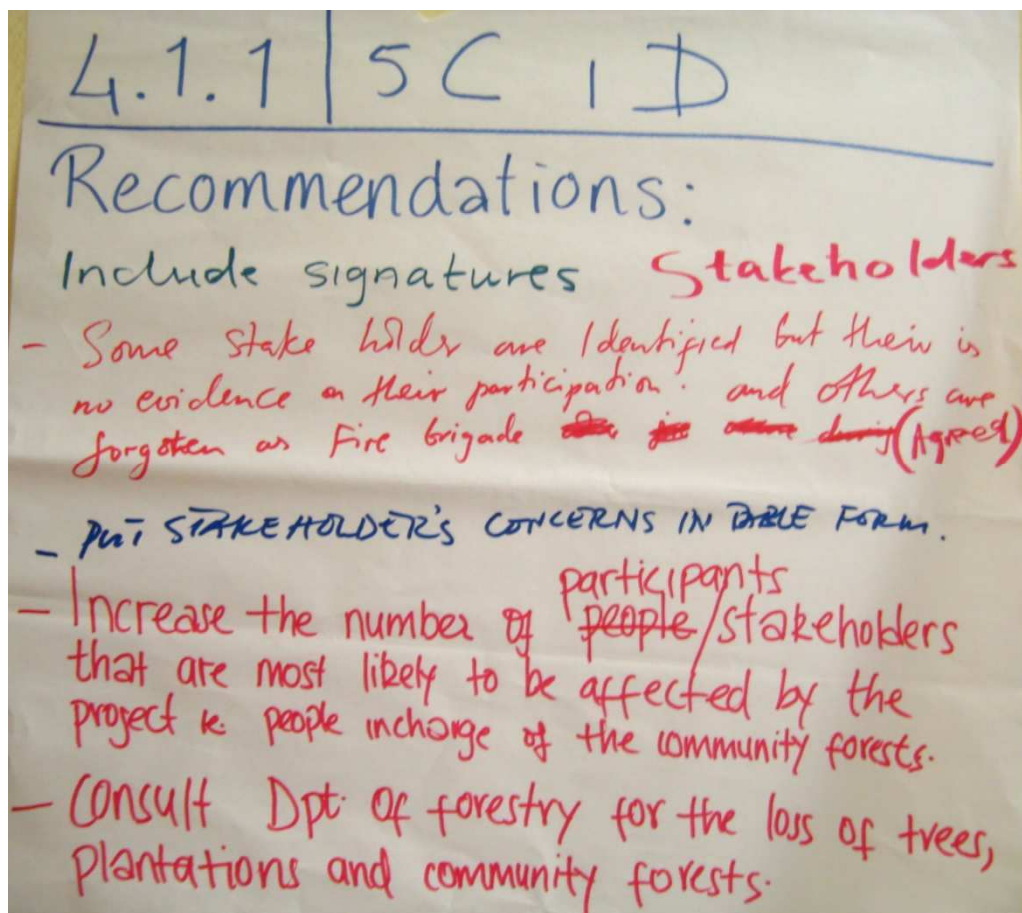 4.1.1 | 5 C , D
Recommendations:
Include signatures Stakeholders
- Some stake holdr are Identified but their is
no evidence on their participation. and others are
forgotten as Fire brigade (Agreed)
- PUT STAKEHOLDER'S CONCERNS IN TABLE FORM.
participants
- Increase the number of people/stakeholders
that are most likely to be affected by the
project ie. people incharge of the community forests.
- Consult Dpt. of forestry for the loss of trees,
plantations and community forests.